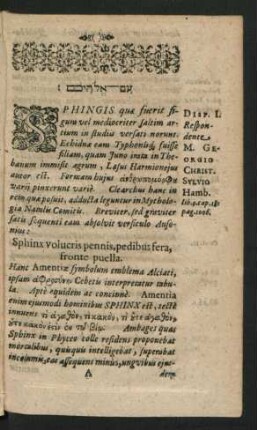 SPHINGIS quæ fuerit fi-
gura vel mediocriter saltim ar-
tium in studiis versati norunt.
Echidna eam Typhoniq; fuisse
filiam, quam Juno irata in The-
banum immisit agrum, Lasus Harmionejus
autor est. Formam hujus
varii pinxerunt variè. Clearchus hanc in
rem quæ posuit, adducta leguntur in Mytholo-
gia Natalis Comitis. Breviter, sed graviter
satis sequenti eam absolvit versiculo Auso-
nius:
Sphinx volucris pennis, pedibus fera,
fronte puella.
Hanc Amentiæ symbolum emblema Alciati,
ipsam Cebetis interpretatur tabu-
la. Aptè equidem ac concinnè. Amentia
enim ejusmodi hominibus SPHINX est, tectè
innuens τί ἀγαθὸν, τί κακὸν, τί ὔτε ἀγαθὸν,
Ambages quas
Sphinx in Phyceo colle residens proponebat
mortalibus, quisquis intelligebat, superabat
incolumis, eas assequens minùs, unguibus ejus-
A dem
DISP. I.
Respon-
dente
M. GE-
ORGIO
CHRIST.
SYLVIO
Hamb.